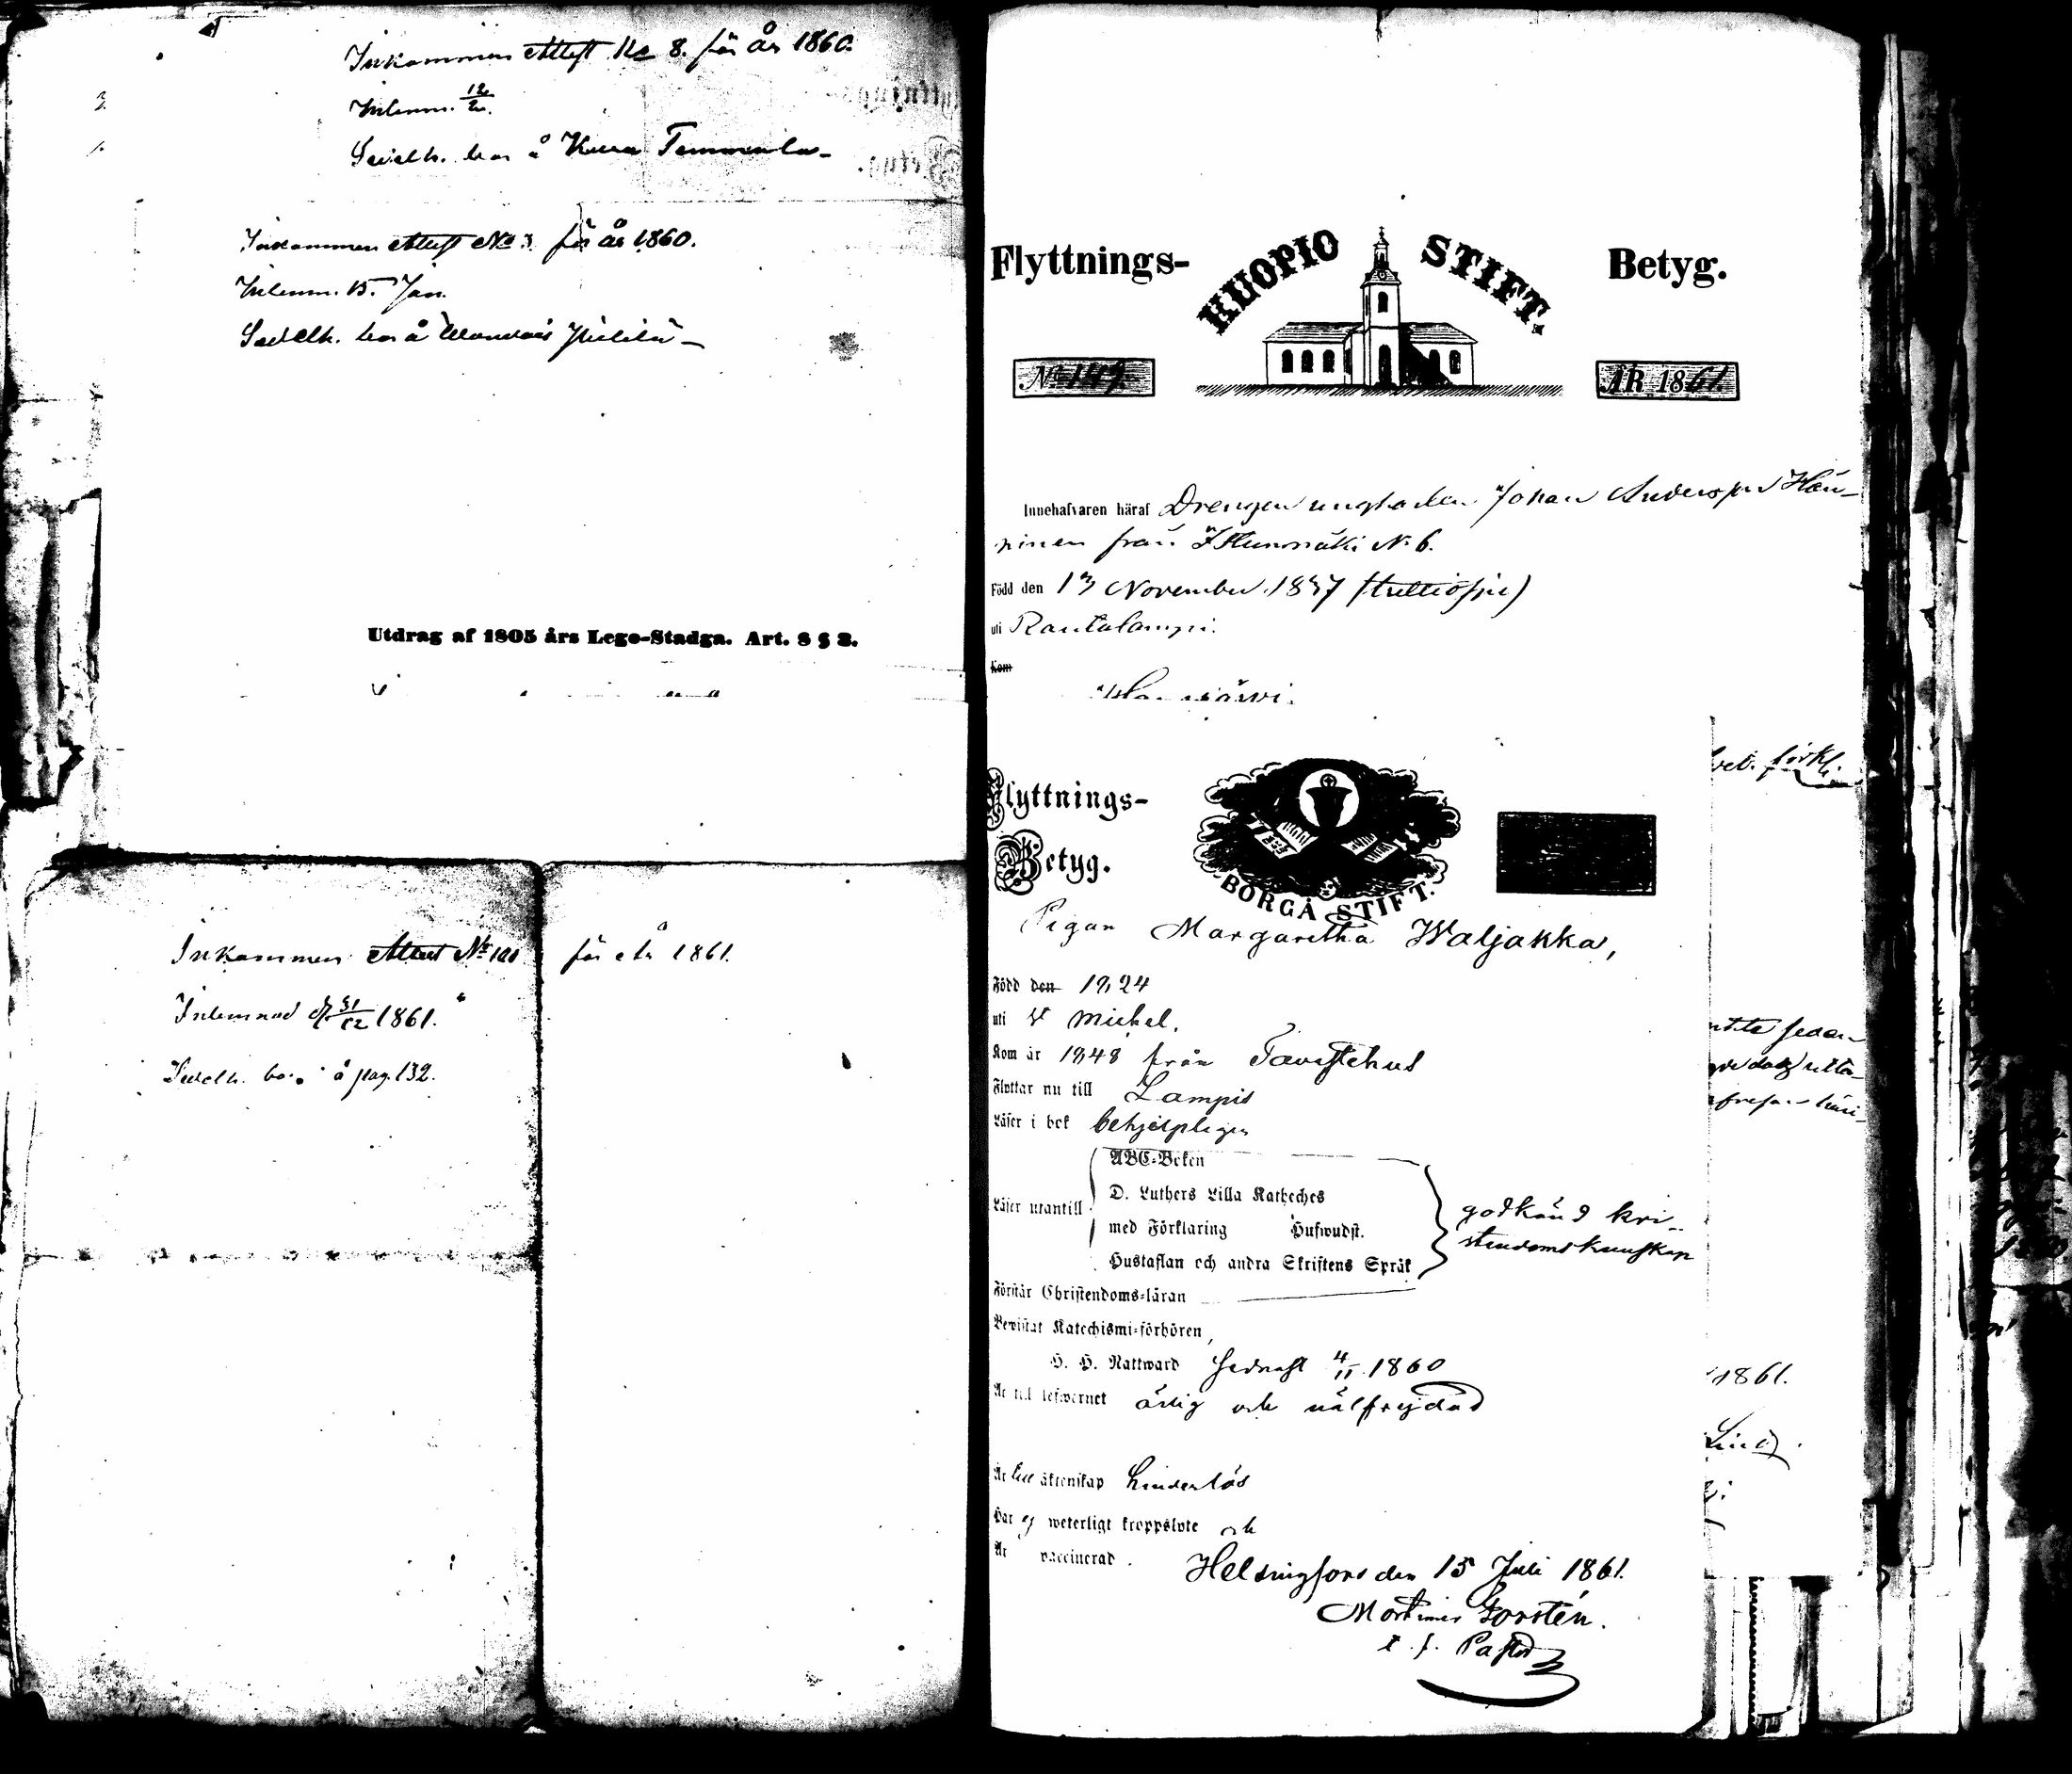 Inkommen Attest No 8. för år 1860.
Inlemn. 12/2.
Sedelh. bor å Kurra Tommila
Inkommen Attest No 3 för år 1860.
Inlemn. 15. Jan.
Sedelh. bor å
Utdrag af 1805 års Lego-Stadga. Art. 8 § 2.
Inkommen Attest No 121 för år 1861.
Inlemnad d. 31/12 1861.
Sedelh. bor å pag. 132.
Flyttnings- KUOPIO STIFT. Betyg.
No 149. ÅR 1861.
Innehafvaren häraf Drengen ungkarlen Johan Andersson Hän-
ninen från No 6.
Född den 13 November 1837
uti Rautalampi.
Kom
Flyttnings-
Betyg.
BORGÅ STIFT.
Pigan Margaretha Waljakka,
Född den 1824
uti St Michel.
Kom år 1848 från Tavastehus
Flyttar nu till Lampis
Läser i bok behjelpligen
ABC-Boken
D. Luthers Lilla Katheches
Läser utantill
med Förklaring Hufwudst.
Hustaflan och andra Skriftens Språk
godkänd kri-
stendomskunskap
Förstår Christendoms-läran
Bewistat Katechismi-förhören,
H. H. Nattward sednast 4/11 1860
Är till lefwernet ärlig och välfrejdad
Är till äktenskap hinderlös
Har ej weterligt kroppslyte och
Är vaccinerad.
Helsingfors den 15 Juli 1861.
Mortimer Forstén.
t. f. Pastor
1861.